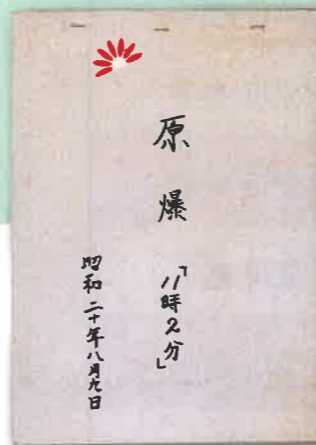 原爆「11時2分」
昭和二十年八月九日